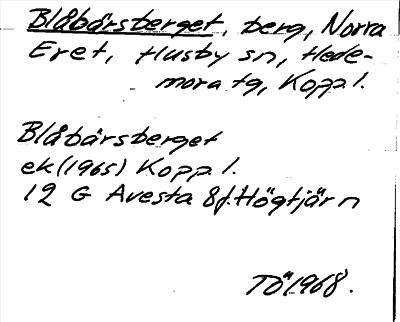 Blåbärsberget, berg, Norra
Eret, Husby sn, Hede-
mora tg, Kopp l.
Blåbärsberget
ek (1965) Kopp l.
12 G Avesta 8f. Högtjärn
Tö 1968.